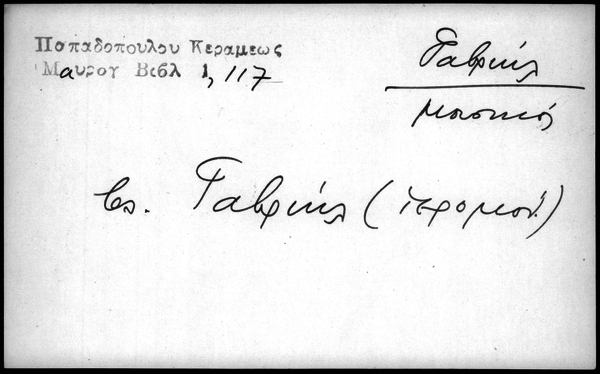 Παπαδοπουλου Κεραμεως
Μαυρογ Βιβλ 1, 117
Γαβριήλ
μουσικός
βλ. Γαβριήλ (ἱερομόν.)